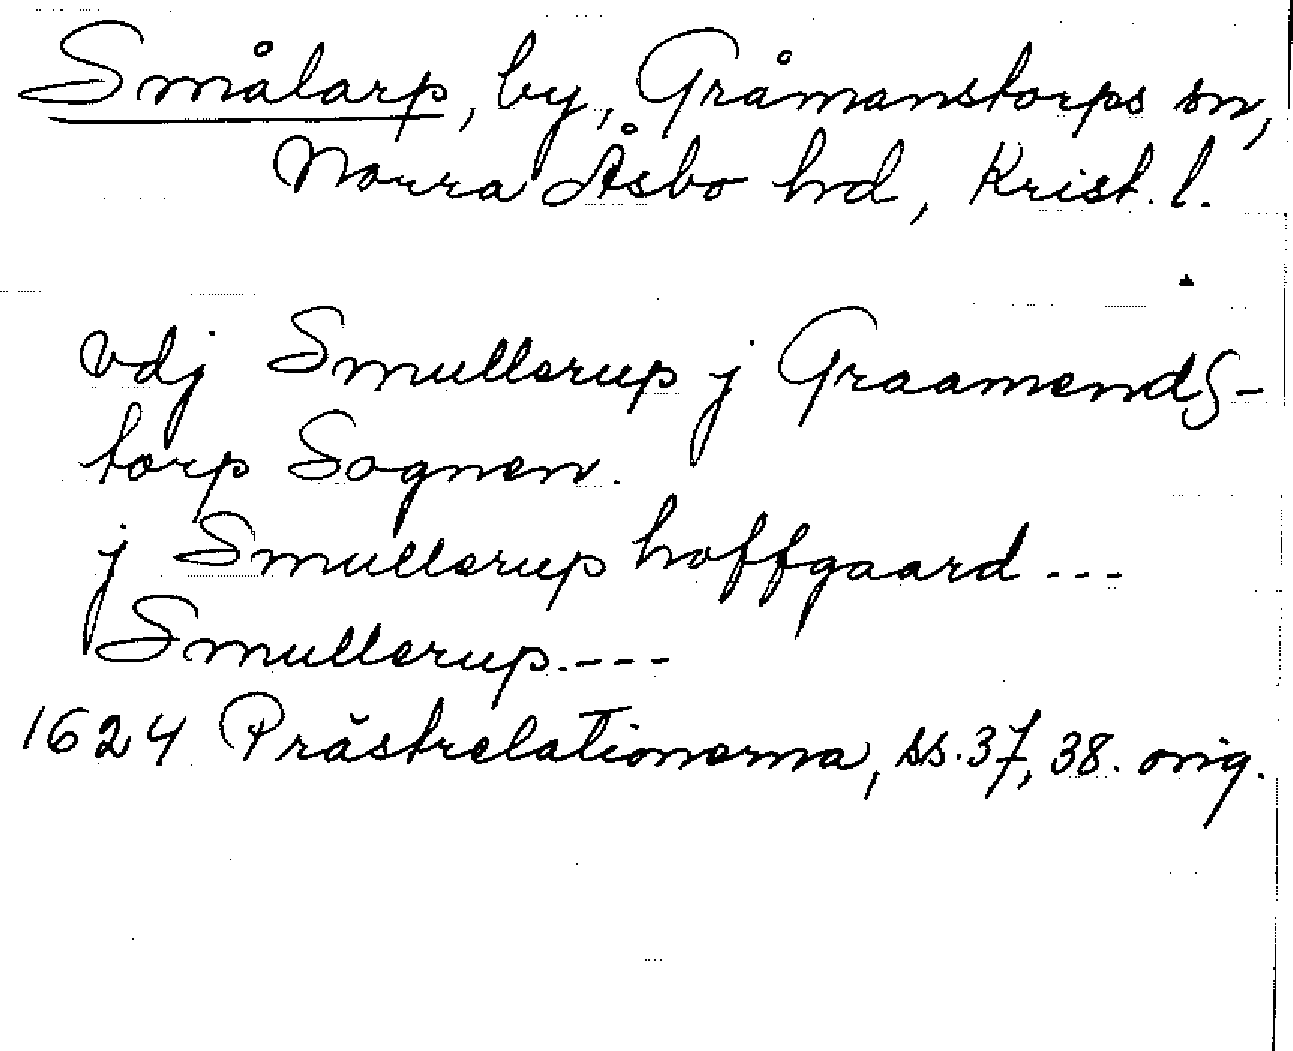 Smålarp, by, Gråmanstorps sn,
Norra Åsbo hd, Krist. l.
vdj Smullerup j Graamendß-
torp Sognen.
j Smullerup hoffgaard ---
Smullerup.---
1624 Prästrelationerna, ss. 37, 38. orig.